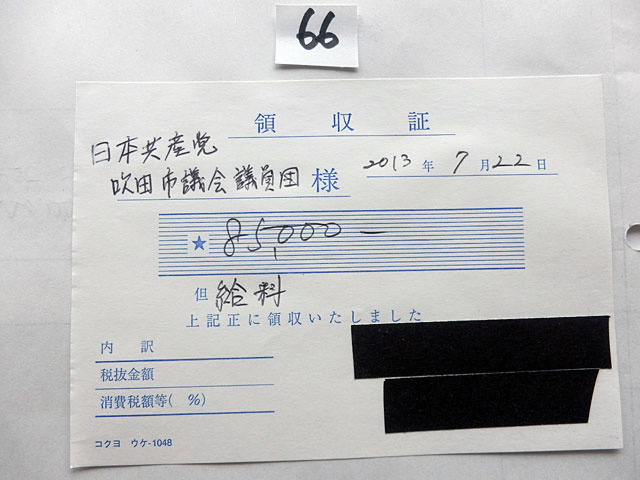 66
領収証
日本共産党
吹田市議会議員団 様
2013年7月22日
★ 85,000-
但 給料
上記正に領収いたしました
内訳
税抜金額
消費税額等( %)
コクヨ ウケ-1048